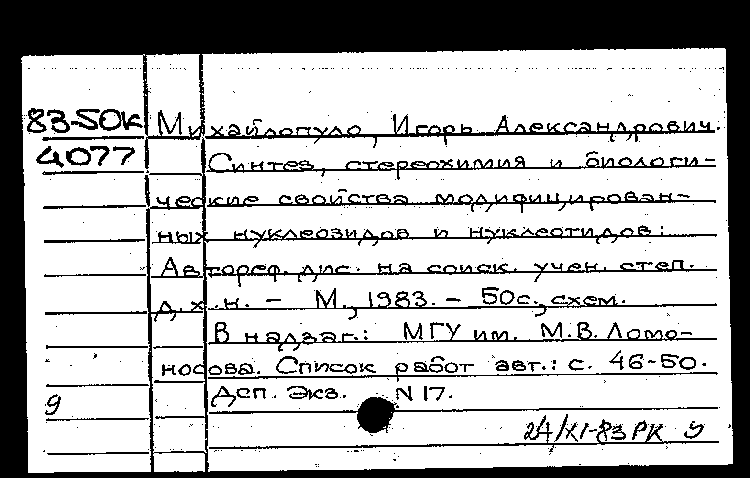 83-50К Михайлопуло, Игорь Александрович.
4077 Синтез, стереохимия и биологи-
ческие свойства модифицирован-
ных нуклеозидов и нуклеотидов:
Автореф. дис. на соиск. учен. степ.
д.х.н. - М., 1983. - 50с., схем.
В надзаг.: МГУ им. М.В. Ломо-
носова. Список работ авт.: с. 46-50.
9 Дсп. Экз. N 17.
24/XI-83 РК